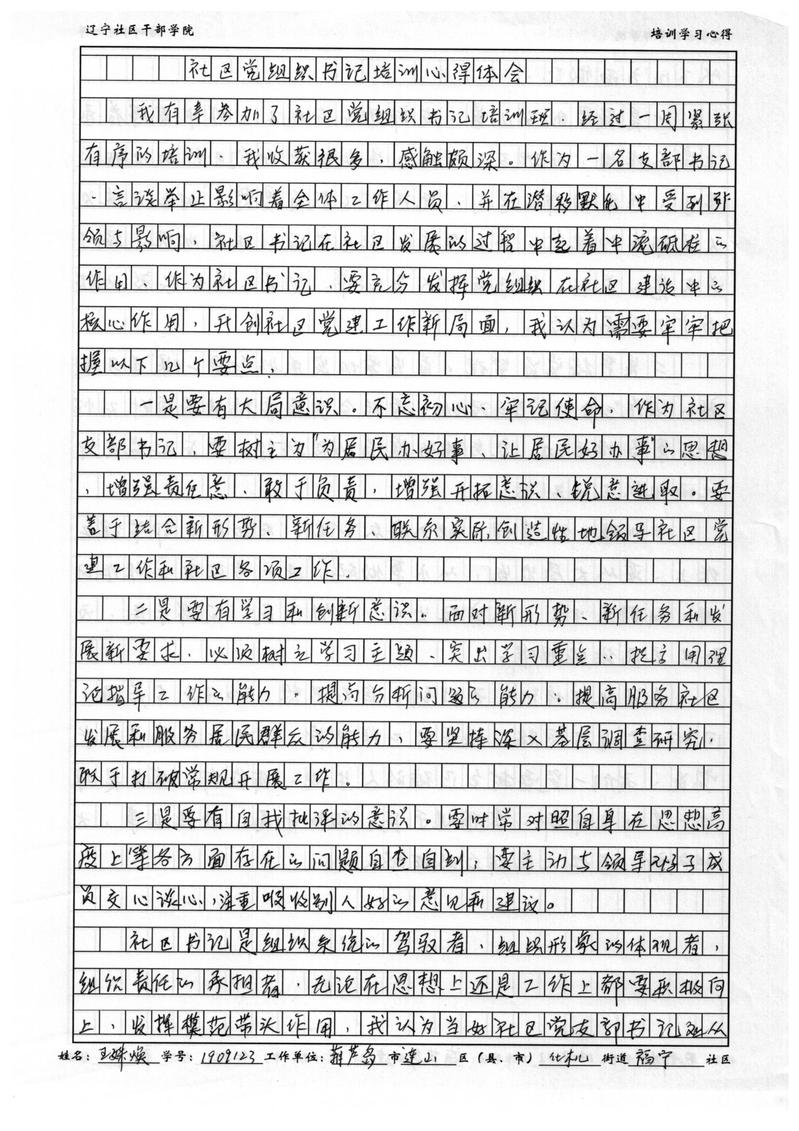 辽宁社区干部学院 培训学习心得
社区党组织书记培训心得体会
我有幸参加了社区党组织书记培训班，经过一周紧张
有序的培训，我收获很多，感触颇深。作为一名支部书记
，言谈举止影响着全体工作人员，并在潜移默化中受到
领与影响，社区书记在社区发展的过程中起着中流砥柱的
作用、作为社区书记，要充分发挥党组织在社区建设中的
核心作用，开创社区党建工作新局面，我认为需要牢牢把
握以下几个要点：
一是要有大局意识。不忘初心、牢记使命，作为社区
支部书记，要树立为"为居民办好事、让居民好办事"的思想
，增强责任意，敢于负责，增强开拓意识、锐意进取。要
善于结合新形势、新任务、联系实际创造性地领导社区党
建工作和社区各项工作．
二是要有学习和创新意识。面对新形势、新任务和发
展新要求，必须树立学习主题、突出学习重点，提高用理
论指导工作的能力，提高分析问题的能力，提高服务社区
发展和服务居民群众的能力，要坚持深入基层调查研究，
敢于打破常规开展工作。
三是要有自我批评的意识。要时常对照自身在思想高
度上等各方面存在的问题自查自纠，要主动与领导班子成
员交心谈心，注重吸收别人好的意见和建议。
社区书记是组织系统的驾驭者，组织形象的体现者，
组织责任的承担者，无论在思想上还是工作上都要积极向
上，发挥模范带头作用，我认为当好社区党支部书记从
姓名：王姝焕 学号：1909123 工作单位：葫芦岛 市 连山 区（县、市）化机 街道 福宁 社区